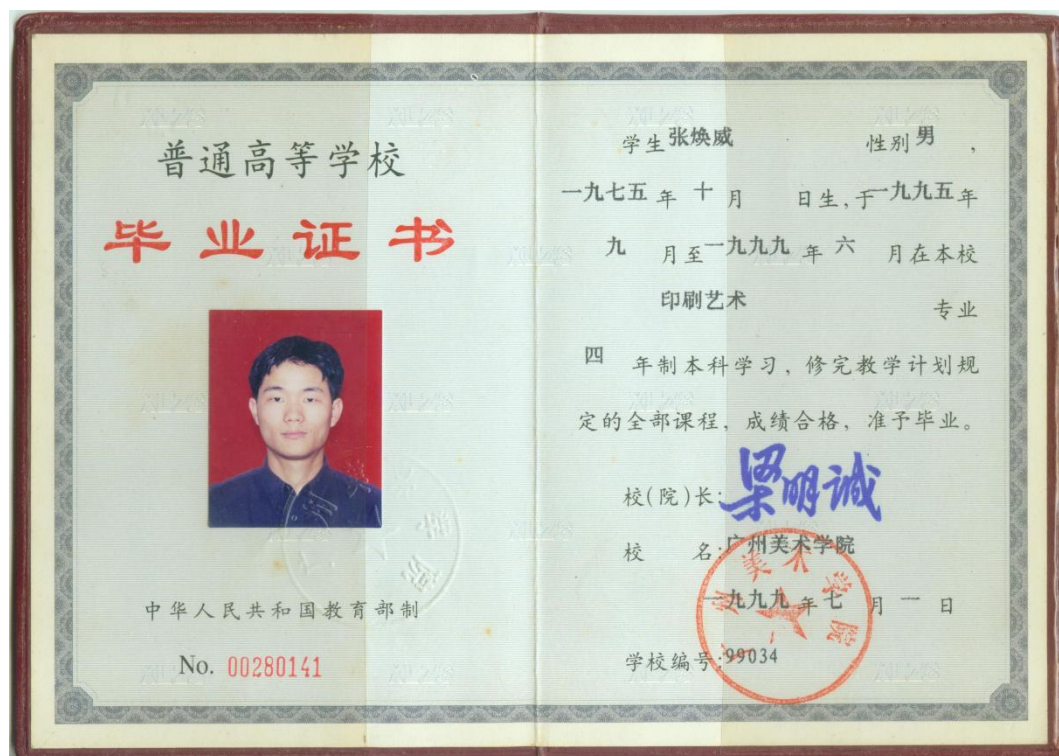 普通高等学校
毕业证书
中华人民共和国教育部制
No. 00280141
学生张焕威 性别男，
一九七五年十月 日生，于一九九五年
九月至一九九九年六月在本校
印刷艺术 专业
四年制本科学习，修完教学计划规
定的全部课程，成绩合格，准予毕业。
校(院)长：梁明诚
校 名：广州美术学院
一九九九年七月一日
学校编号：99034
广州美术学院